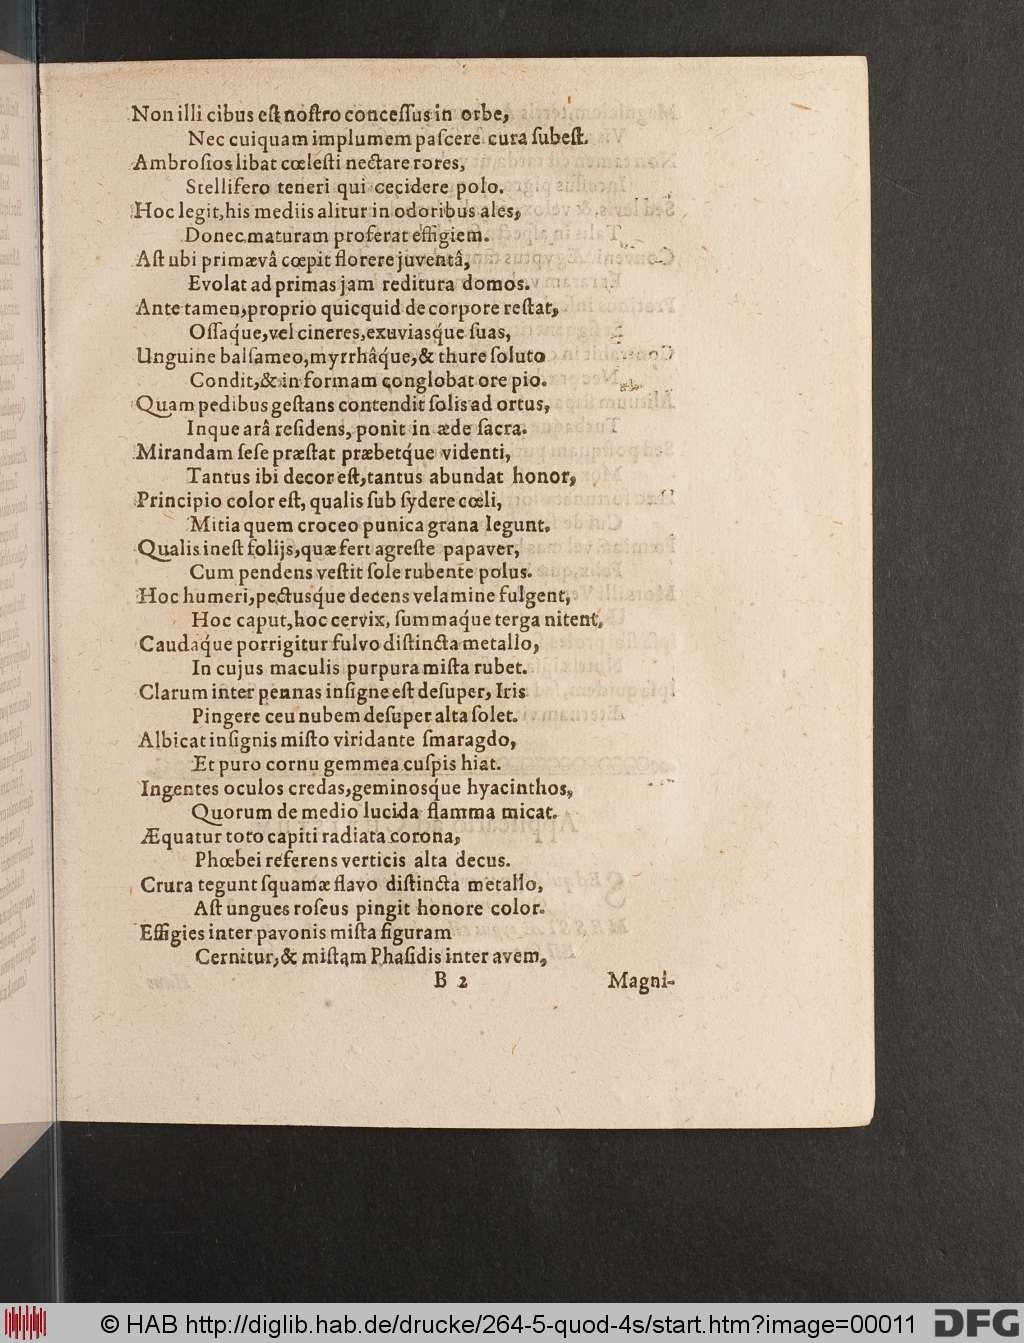 Non illi cibus eſt noſtro conceſſus in orbe,
Nec cuiquam implumem paſcere cura ſubeſt.
Ambroſios libat cœleſti nectare rores,
Stellifero teneri qui cecidere polo.
Hoc legit, his mediis alitur in odoribus ales,
Donec maturam proferat effigiem.
Aſt ubi primævâ cœpit florere juventâ,
Evolat ad primas jam reditura domos.
Ante tamen, proprio quicquid de corpore reſtat,
Oſſaque, vel cineres, exuviasq́ue ſuas,
Unguine balſameo, myrrhâq́ue, & thure ſoluto
Condit, & in formam conglobat ore pio.
Quam pedibus geſtans contendit ſolis ad ortus,
Inque arâ reſidens, ponit in æde ſacra.
Mirandam ſeſe præſtat præbetq́ue videnti,
Tantus ibi decor eſt, tantus abundat honor,
Principio color eſt, qualis ſub ſydere cœli,
Mitia quem croceo punica grana legunt.
Qualis ineſt folijs, quæ fert agreſte papaver,
Cum pendens veſtit ſole rubente polus.
Hoc humeri, pectusq́ue decens velamine fulgent,
Hoc caput, hoc cervix, ſummaque terga nitent,
Caudaq́ue porrigitur fulvo diſtincta metallo,
In cujus maculis purpura miſta rubet.
Clarum inter pennas inſigne eſt deſuper, Iris
Pingere ceu nubem deſuper alta ſolet.
Albicat inſignis miſto viridante ſmaragdo,
Et puro cornu gemmea cuſpis hiat.
Ingentes oculos credas, geminosq́ue hyacinthos,
Quorum de medio lucida flamma micat.
Æquatur toto capiti radiata corona,
Phœbei referens verticis alta decus.
Crura tegunt ſquamæ flavo diſtincta metallo,
Aſt ungues roſeus pingit honore color.
Effigies inter pavonis miſta figuram
Cernitur, & miſtam Phaſidis inter avem,
B 2 Magni-
© HAB http://diglib.hab.de/drucke/264-5-quod-4s/start.htm?image=00011
DFG